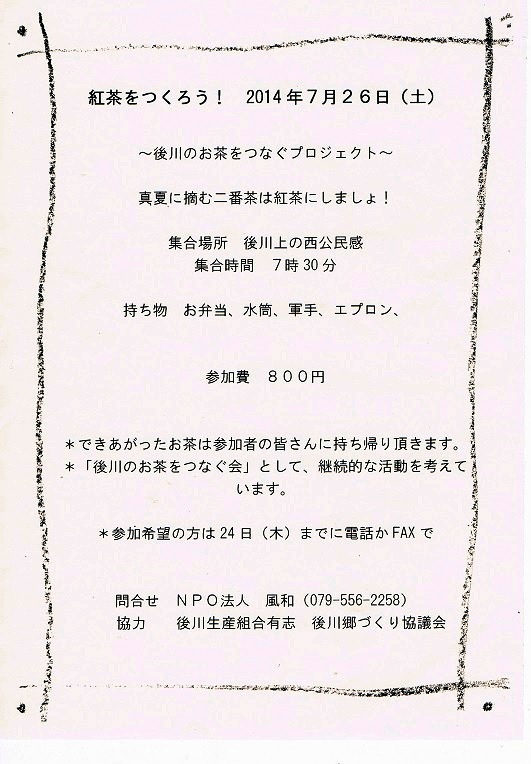 紅茶をつくろう！　2014年７月２６日（土）
～後川のお茶をつなぐプロジェクト～
真夏に摘む二番茶は紅茶にしましょ！
集合場所　後川上の西公民感
集合時間　７時30分
持ち物　お弁当、水筒、軍手、エプロン、
参加費　８００円
＊できあがったお茶は参加者の皆さんに持ち帰り頂きます。
＊「後川のお茶をつなぐ会」として、継続的な活動を考えて
います。
＊参加希望の方は24日（木）までに電話かFAXで
問合せ　ＮＰＯ法人　風和（079-556-2258）
協力　　後川生産組合有志　後川郷づくり協議会